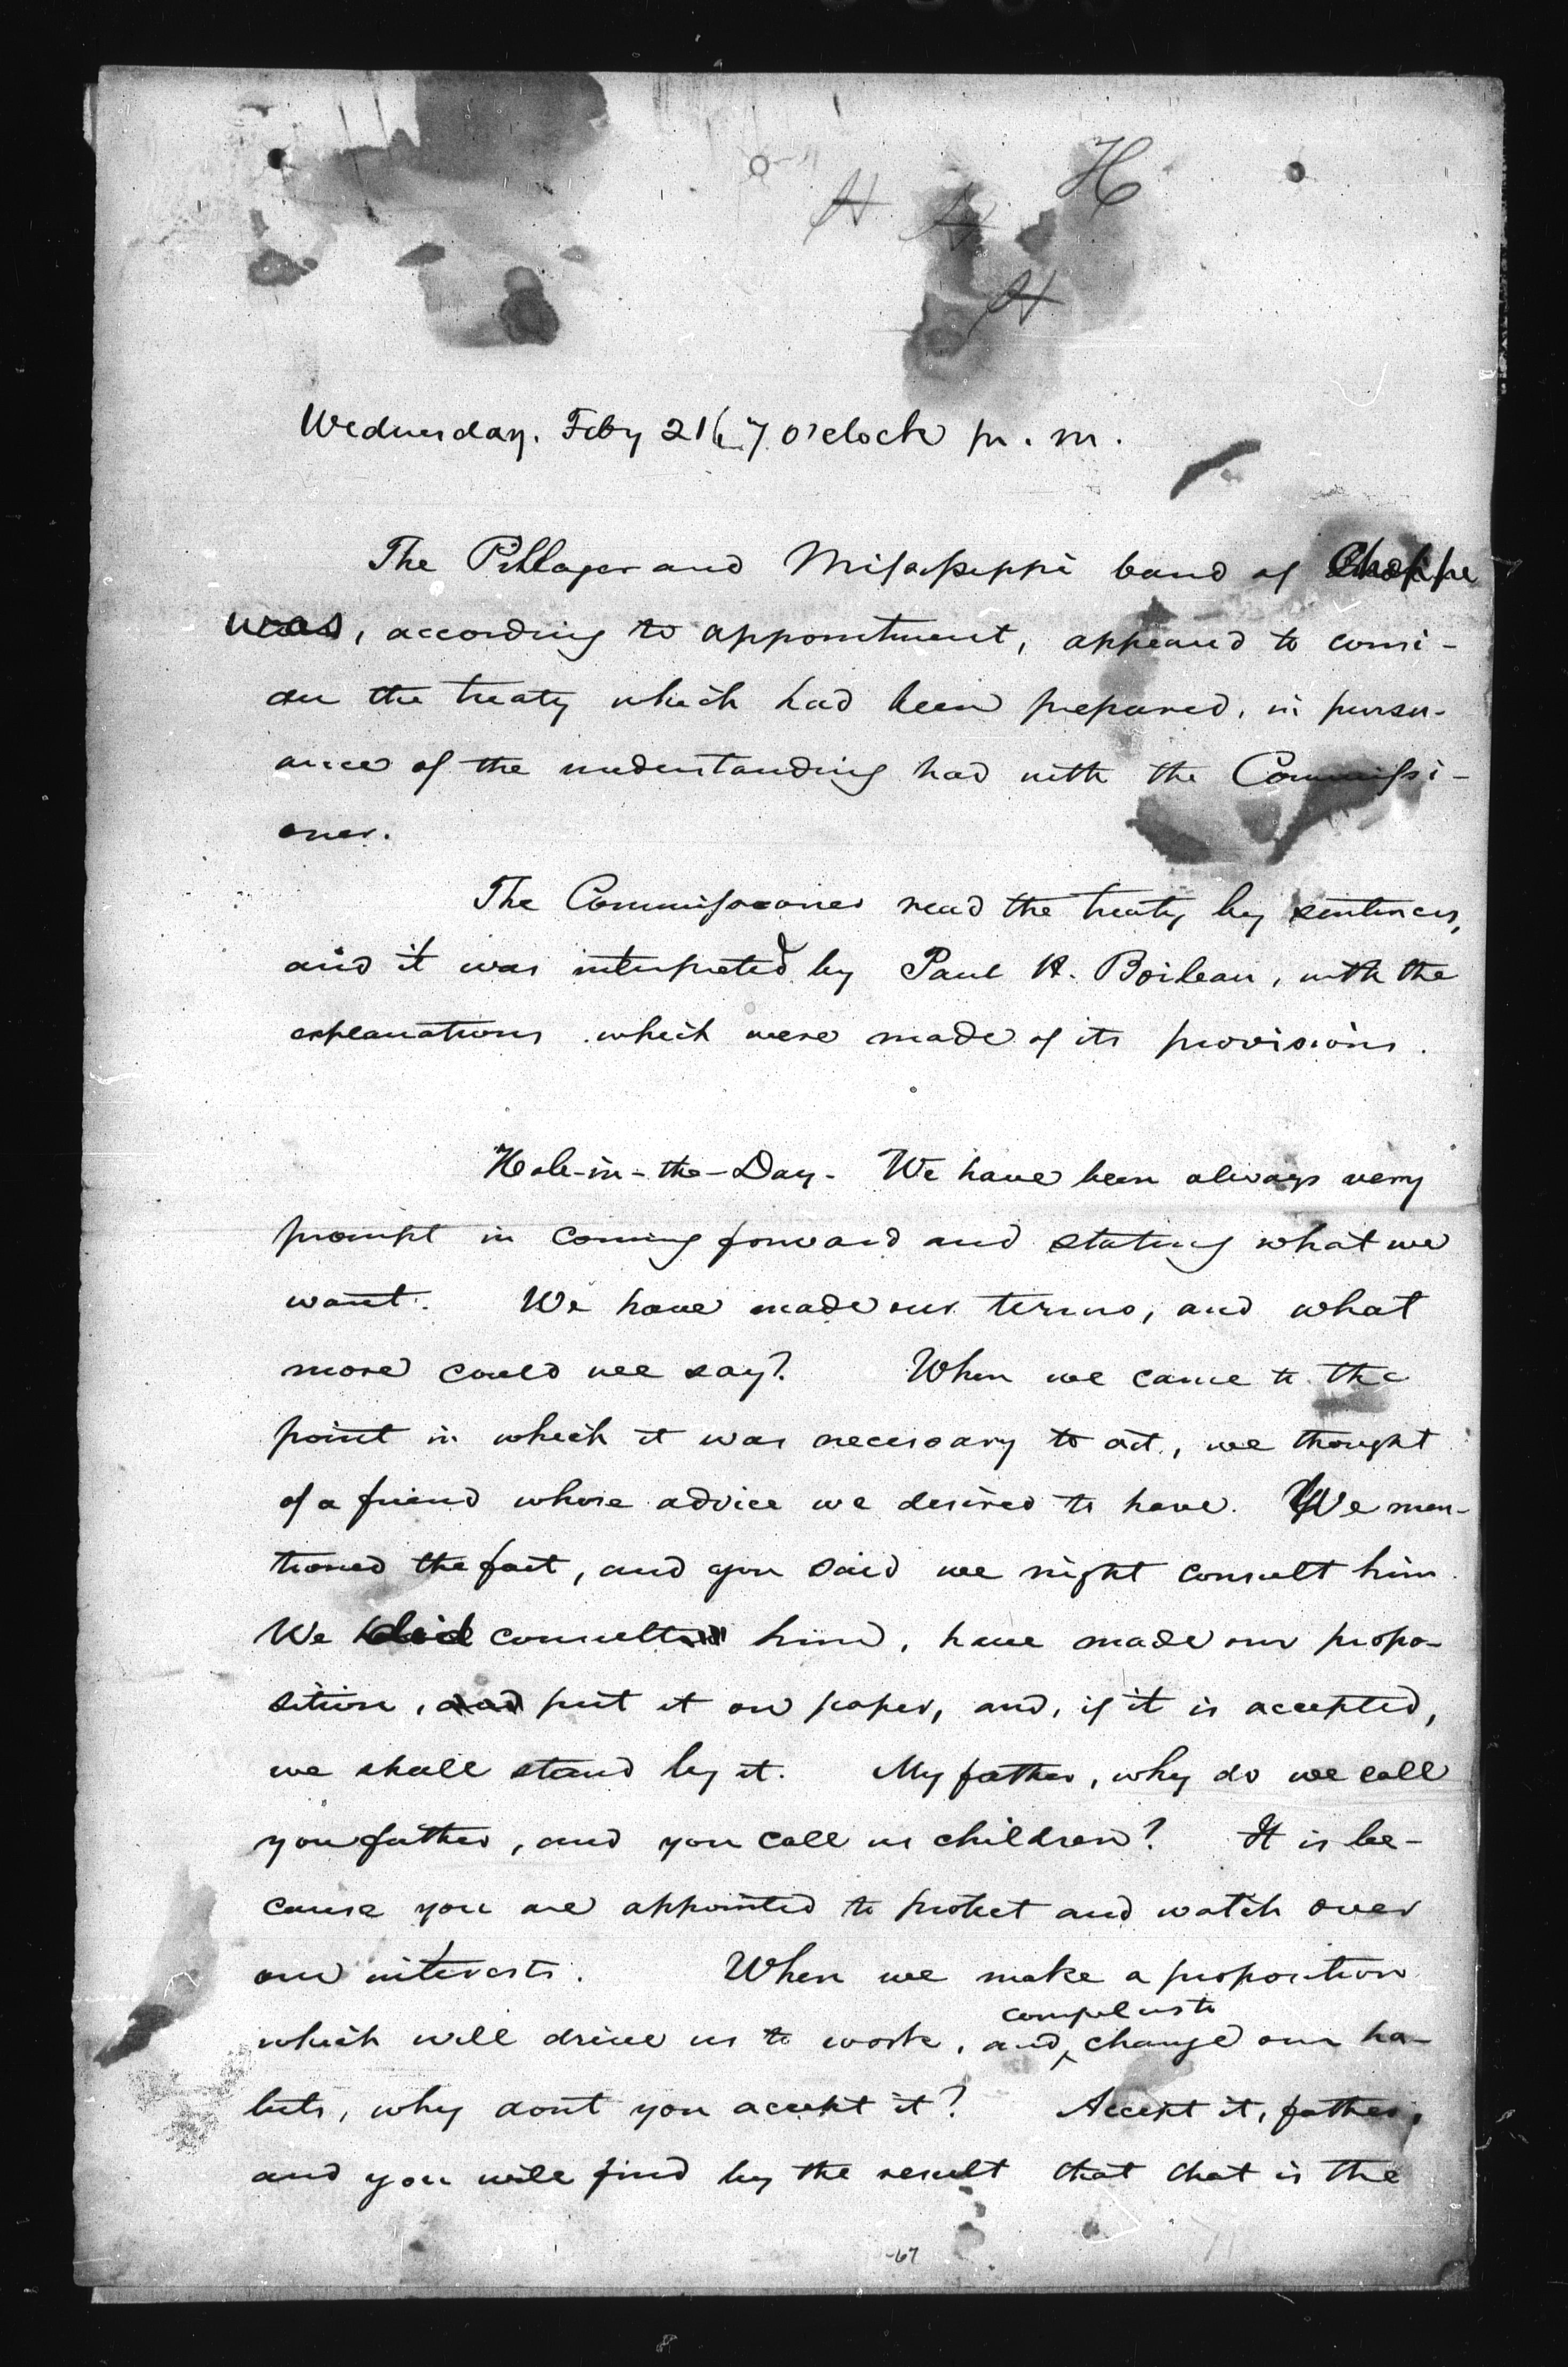 H
H H
H
Wednesday. Feby 21, 7 o'clock p. m.
The Pillager and Mississippi band of Chippe
was, according to appointment, appeared to consi-
der the treaty which had been prepared, in pursu-
ance of the understanding had with the Commissi-
oner.
The Commissioner read the treaty by sentences,
and it was interpreted by Paul H. Boileau, with the
explanations which were made of its provisions.
Hole-in-the-Day- We have been always very
prompt in coming forward and stating what we
want. We have made our terms, and what
more could we say? When we came to the
point in which it was necessary to act, we thought
of a friend whose advice we desired to have. We men-
tioned the fact, and you said we might consult him.
We did consult him, have made our propo-
sition, and put it on paper, and, if it is accepted,
we shall stand by it. My father, why do we call
you father, and you call us children? It is be-
cause you are appointed to protect and watch over
our interests. When we make a proposition
which will drive us to work, and compel us to change our ha-
bits, why dont you accept it? Accept it, father,
and you will find by the result that that is the
67